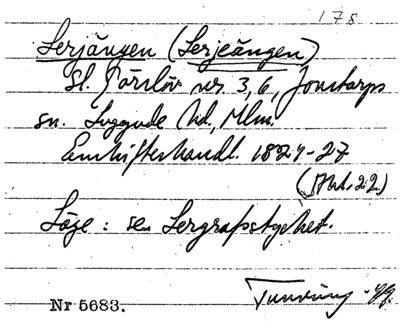 178
Serjängen (Serjeängen)
sl. Pärslöv nr. 3, 6, Jonstorps
sn. Luggude hd, Mlm.
Enskifteshandl. 1824-27
(Akt. 22)
Läge: se Sergrafstycket.
Nr 5683.